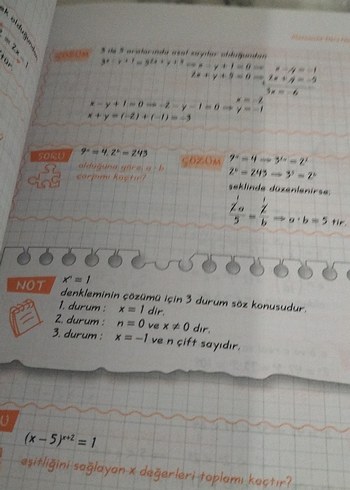 ÇÖZÜM
3 ile 5 aralarında asal sayılar olduğundan
x - y + 1 = 0 ⇒ x - y = -1
2x + y + 9 = 0 ⇒ 2x + y = -9
3x = -6
x = -2
x - y + 1 = 0 ⇒ -2 - y - 1 = 0 ⇒ y = -1
x + y = (-2) + (-1) = -3
SORU
9ᵃ = 4, 2ᵇ = 243
olduğuna göre, a · b
çarpımı kaçtır?
ÇÖZÜM
şeklinde düzenlenirse;
2a / 5 = 2 / b ⇒ a · b = 5 tir.
NOT
xⁿ = 1
denkleminin çözümü için 3 durum söz konusudur.
1. durum : x = 1 dir.
2. durum : n = 0 ve x ≠ 0 dır.
3. durum : x = -1 ve n çift sayıdır.
(x - 5)ˣ⁺² = 1
eşitliğini sağlayan x değerleri toplamı kaçtır?